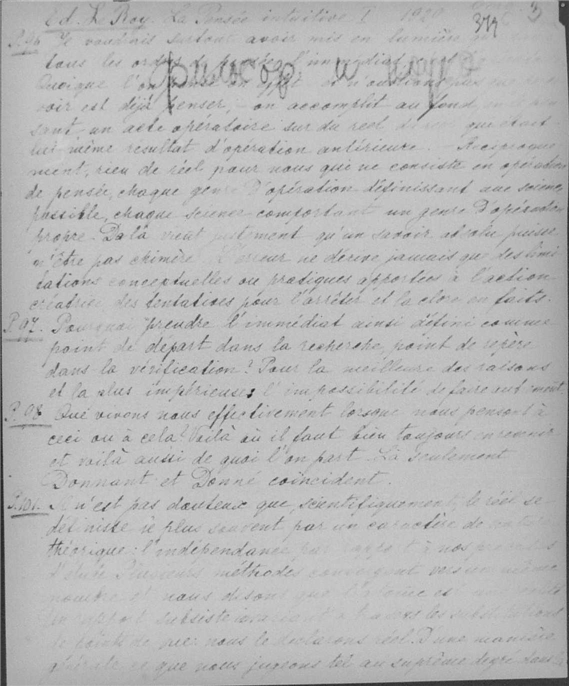 Ed. Le Roy. La Pensée intuitive I 1929
377
P. 96 Je voudrais surtout avoir mis en lumière
tous les ordres
Quoique l'on
voir est déjà penser, on accomplit au fond en
sant, un acte opératoire sur du réel, que étant
lui même résultat d'opération antérieure. Réciproque
ment, rien de réel pour nous qui ne consiste en opération
de pensée, chaque genre d'opération définissant une science
possible, chaque science comportant un genre d'opération
propre. De là vient justement qu'un savoir absolu puisse
n'être pas chimère. L'erreur ne dérive jamais que des limi
tations conceptuelles ou pratiques apportées à l'action
créatrice des tentatives pour l'arrêter et la clore en faits.
P. 97. Pourquoi prendre l'immédiat ainsi défini comme
point de départ dans la recherche, point de repère
dans la vérification? Pour la meilleure des raisons
et la plus impérieuse: l'impossibilité de faire autrement.
P. 98 Que vivons nous effectivement lorsque nous pensons à
ceci ou à cela? Voilà où il faut bien toujours en revenir
et voilà aussi de quoi l'on part. Là seulement
Donnant et Donné coïncident.
P. 101. Il n'est pas douteux que, scientifiquement, le réel se
définisse le plus souvent par un caractère de nature
théorique: l'indépendance par rapport à nos procédés
d'étude. Plusieurs méthodes convergent vers un même
nombre et nous disons que l'atome est une
un rapport subsiste invariant à travers les substitutions
de points de vue: nous le déclarons réel. D'une manière
générale ce que nous jugeons tel au suprême degré dans